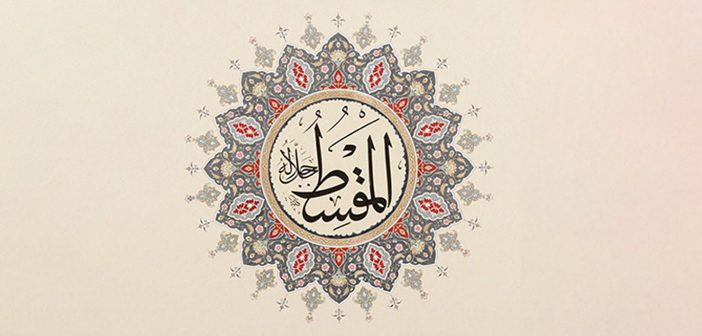 المُقْسِطُ جل جلاله